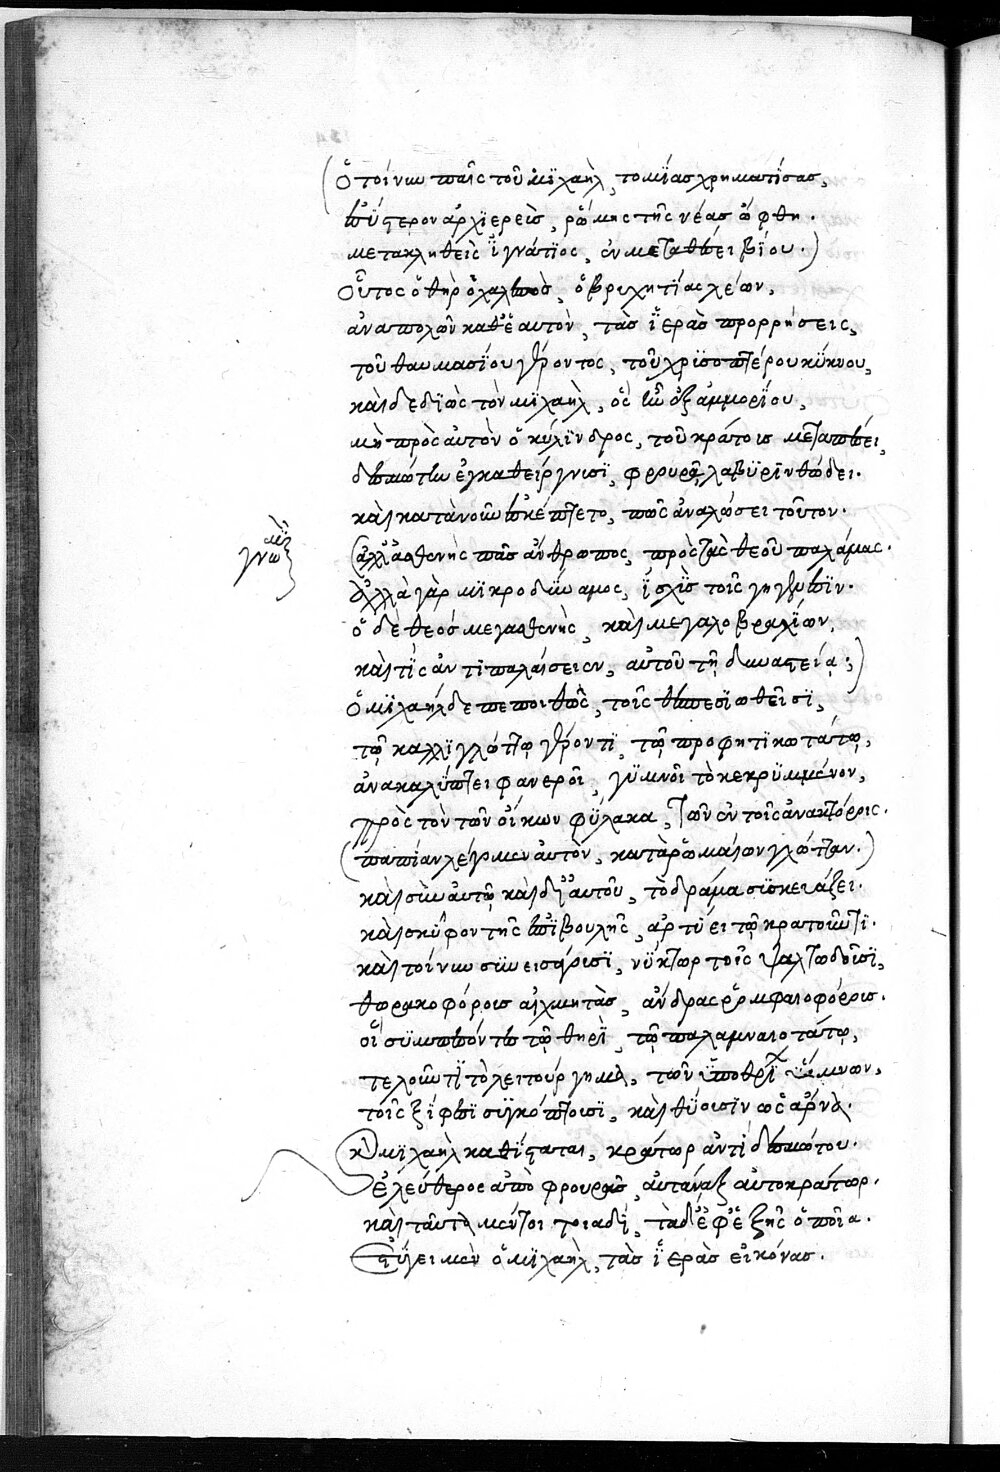 Ὁ τοίνυν παῖς τοῦ μιχαὴλ, τομίας χρηματίσας,
ὕστερον ἀρχιερεὺς, ῥώμης τῆς νέας ὤφθη.
μετακληθεὶς ἰγνάτιος, ἐν μεταθέσει βίου.
Οὗτος ὁ θὴρ ὁ χαλεπὸς, ὁ βριχητίας λέων,
ἀναπολῶν καθ' ἑαυτὸν, τὰς ἱερὰς προρρήσεις,
τοῦ θαυμασίου γέροντος, τοῦ χρυσοπτέρου κύκνου,
καὶ δεδιὼς τὸν μιχαὴλ, ὃς ἦν ἐξ ἀμμορίου,
μὴ πρὸς αὐτὸν ὁ κύλινδρος, τοῦ κράτους μεταπέσει,
δεσμώτην ἐγκαθείργνυσι, φρουρᾷ λαβυρινθώδει.
καὶ κατὰ νοῦν ἐσκέπτετο, πῶς ἀναλώσει τοῦτον.
γνώμη
ἀλλ' ἀσθενὴς πᾶς ἄνθρωπος, πρὸς τὰς θεοῦ παλάμας.
ἀλλὰ γὰρ μικροδύναμος, ἰσχὺς τοῖς γηγενέσιν.
ὁ δὲ θεὸς μεγασθενὴς, καὶ μεγαλοβραχίων,
καὶ τίς ἀντιπαλαίσειεν, αὐτοῦ τῇ δυναστείᾳ;
Ὁ μιχαὴλ δὲ πεποιθὼς, τοῖς θεσπεσιωθεῖσι,
τῷ καλλιγλώττῳ γέροντι, τῷ προφητικωτάτῳ,
ἀνακαλύπτει φανεροῖ, γυμνοῖ τὸ κεκρυμμένον,
πρὸς τὸν τῶν οἴκων φύλακα, τῶν ἐν τοῖς ἀνακτόροις.
παπίαν λέγομεν αὐτὸν, κατὰ ῥωμαίων γλῶτταν.
καὶ σὺν αὐτῷ καὶ δι' αὐτοῦ, τὸ δράμα συσκευάζει.
καὶ σκύφον τῆς ἐπιβουλῆς, ἀρτύει τῷ κρατοῦντι.
καὶ τοίνυν συνεισφέρουσι, νύκτωρ τοῖς ψαλτωδοῦσι,
θωρακοφόρους αἰχμητὰς, ἄνδρας ῥομφαιοφόρους.
οἳ συμπεσόντες τῷ θηρὶ, τῷ παλαμναιοτάτῳ,
τελοῦντι τὸ λειτούργημα, τῶν ὕμνων,
τοῖς ξίφεσι συγκόπτουσι, καὶ θύουσιν ὡς ἄρνα.
Καὶ μιχαὴλ καθίσταται, κράτωρ ἀντὶ δεσμώτου.
ἐλεύθερος ἀπὸ φρουρᾶς, αὐτάναξ αὐτοκράτωρ.
καὶ ταῦτα μέντοι τοιαδὶ, τὰ δ' ἐφεξῆς ὁποῖα.
Στύγει μὲν ὁ μιχαὴλ, τὰς ἱερὰς εἰκόνας.